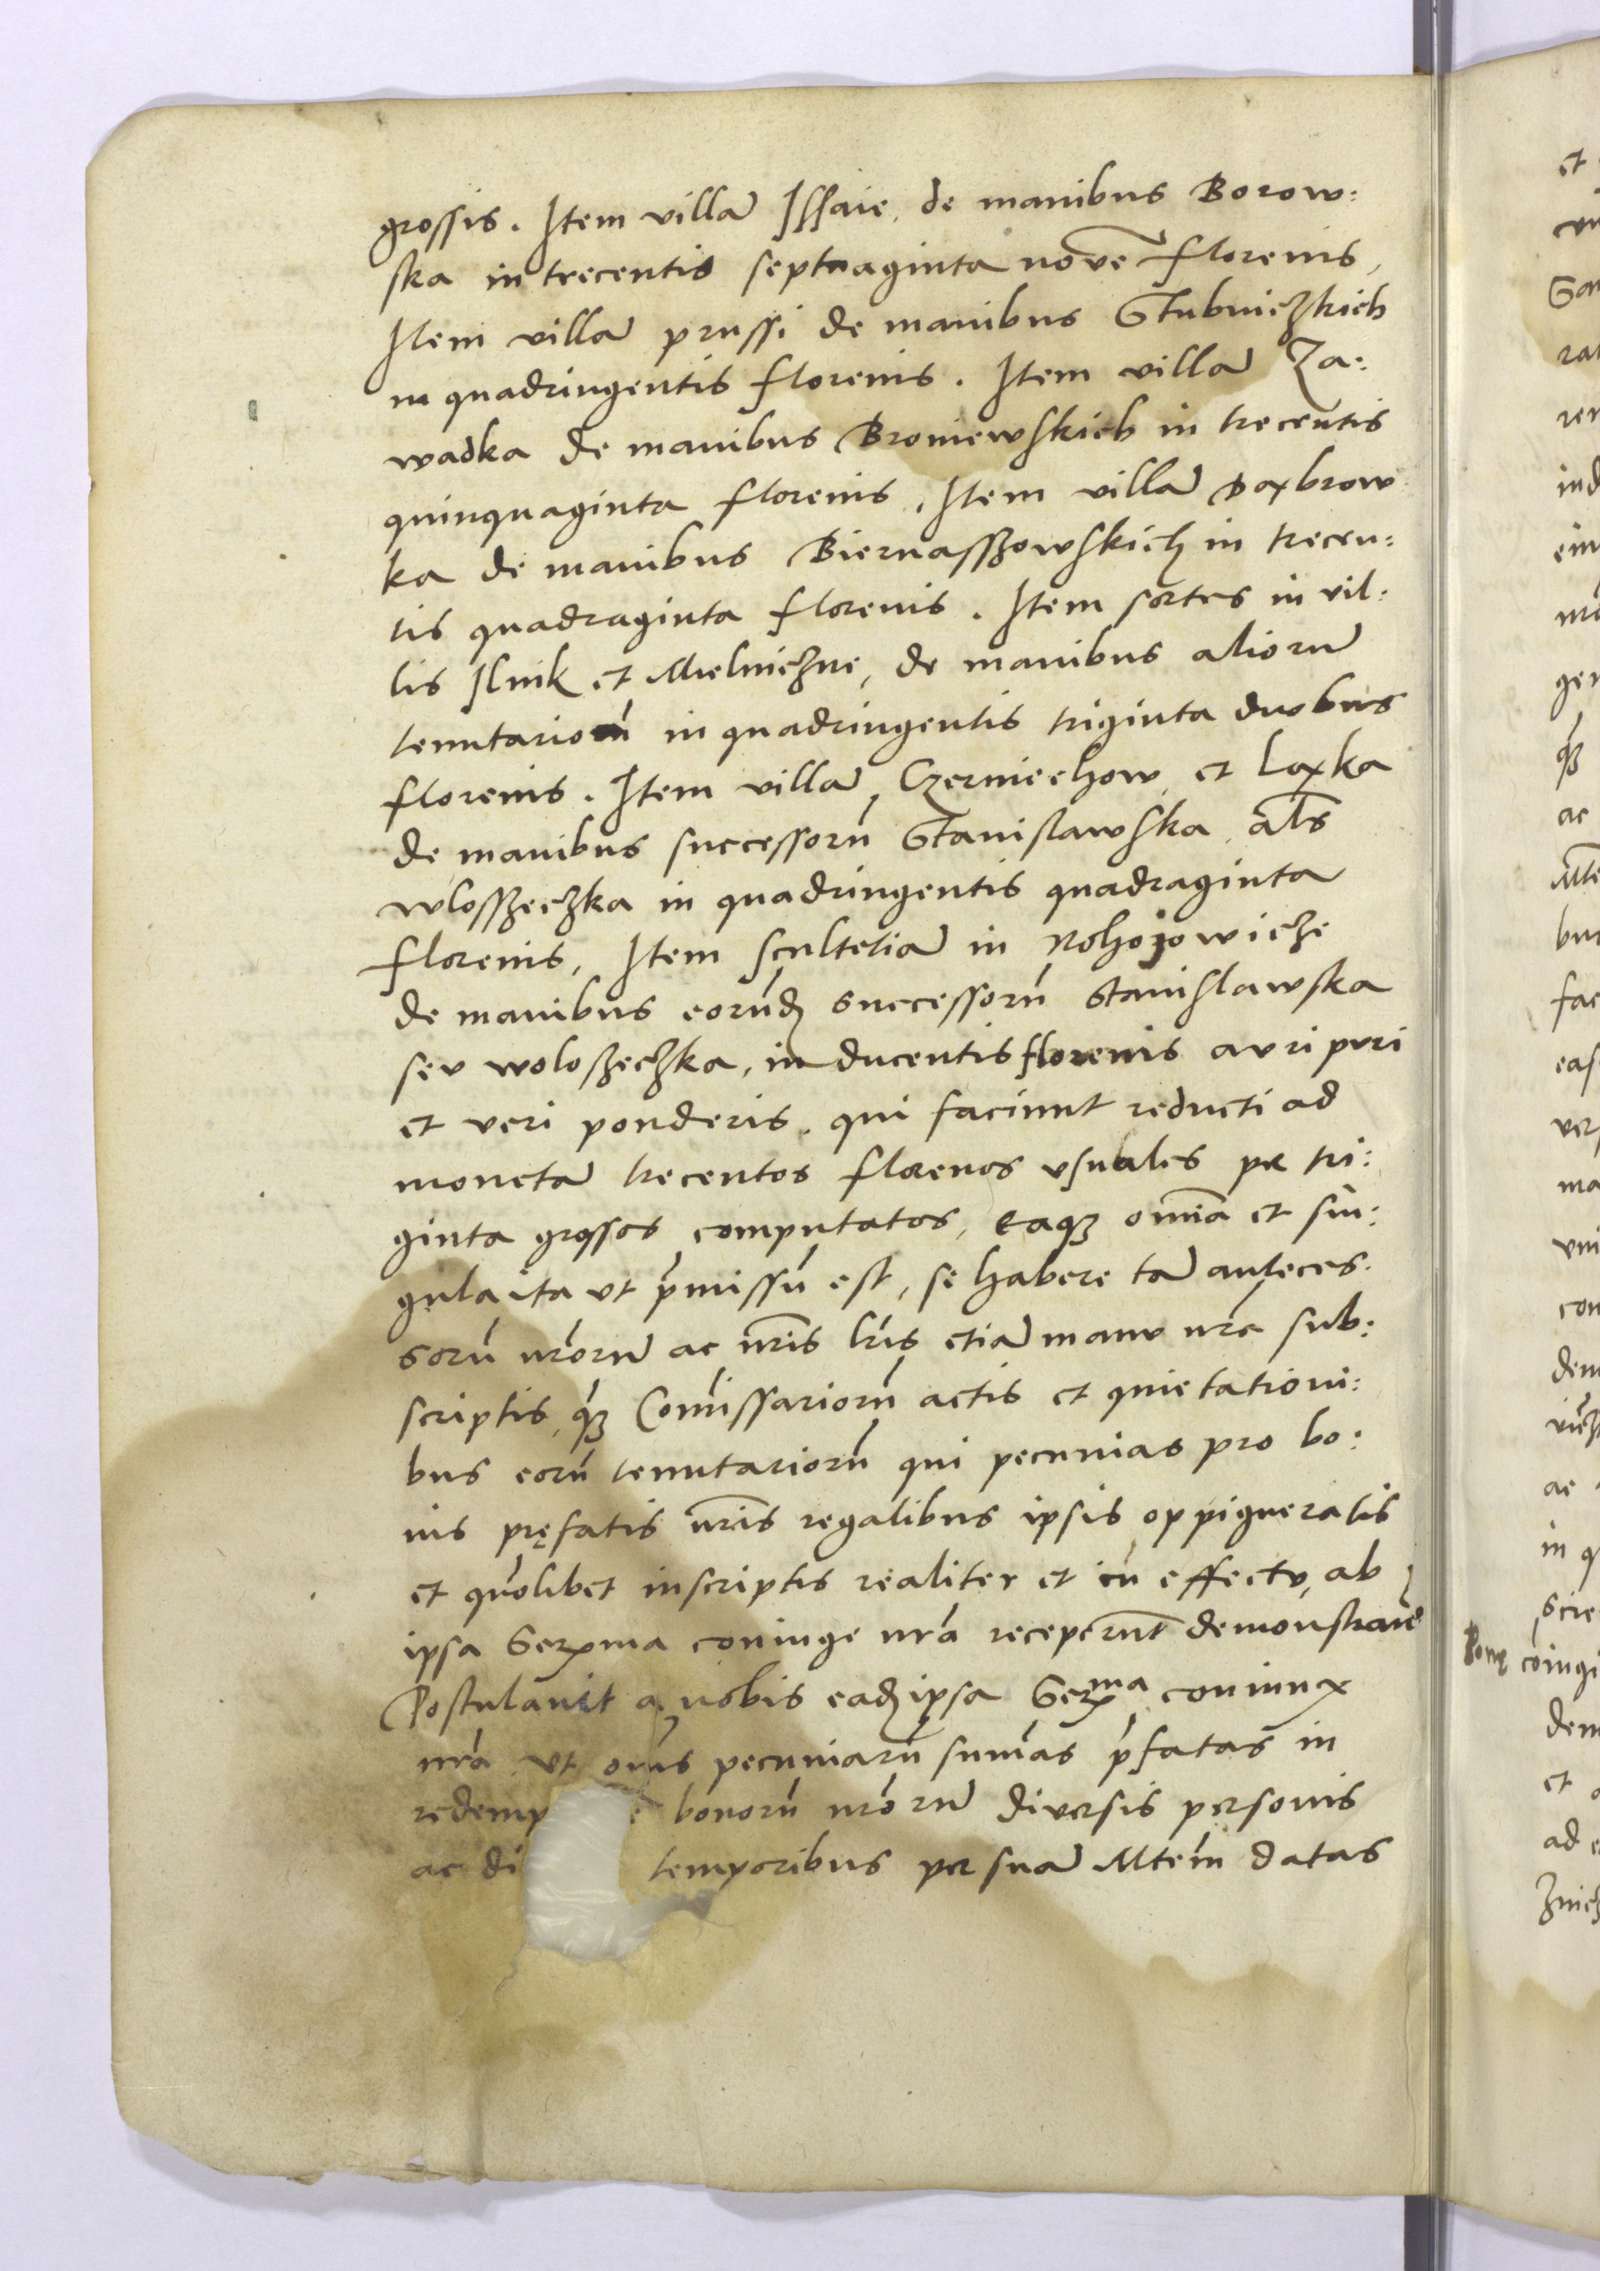 grossis. Item villã Issaie, de manibus Borow:
ska in trecentis septuaginta novẽ florenis,
Item villã prussi de manibus Stubniczkich
in quadringentis florenis. Item villã Za:
wadka de manibus Broniewskich in trecentis
quinquaginta florenis, Item villã Daxbrow
ka de manibus Biernasszowskich in trecen:
tis quadraginta florenis. Item sortes in vil:
lis Ilnik et Mielniczne, de manibus aliorũ
tenutariorũ in quadringentis triginta duobus
florenis. Item villã Czerniechow et Laxka
de manibus successorũ Stanislawska als
wlosszeczka in quadringentis quadraginta
florenis, Item scultetiã in Rohozowicze
de manibus eorũdẽ successorũ Stanislawska
sev woloszeczka, in ducentis florenis avri pvri
et veri ponderis. qui faciunt reducti ad
monetã trecentos florenos vsuales per tri:
ginta grossos computatos, eaqz omia et sin:
gula ita vt pmissũ est, se habere tã anteces:
sorũ nrorũ ac nris lris etiã manv nra sub:
scriptis, qz Comissariorũ actis et quietationi:
bus eorũ tenutariorũ qui pecunias pro bo:
nis pręfatis nris regalibus ipsis oppigneratis
et quolibet inscriptis realiter et cũ effectv, ab
ipsa Serma coniuge nra receperunt demonstravẽ
Postulavit a nobis eadẽ ipsa Serma coniunx
nra vt oms pecuniarũ sumas pfatas in
redemp bonorũ nrorũ diversis personis
ac di temporibus per suã Mtem datas
et
Gar
rat
ger
ac
Mte
bus
fac
eas
ver
ma
vni
con
dem
ac
in q
scie
Bonę coniugi
dem
et
ad